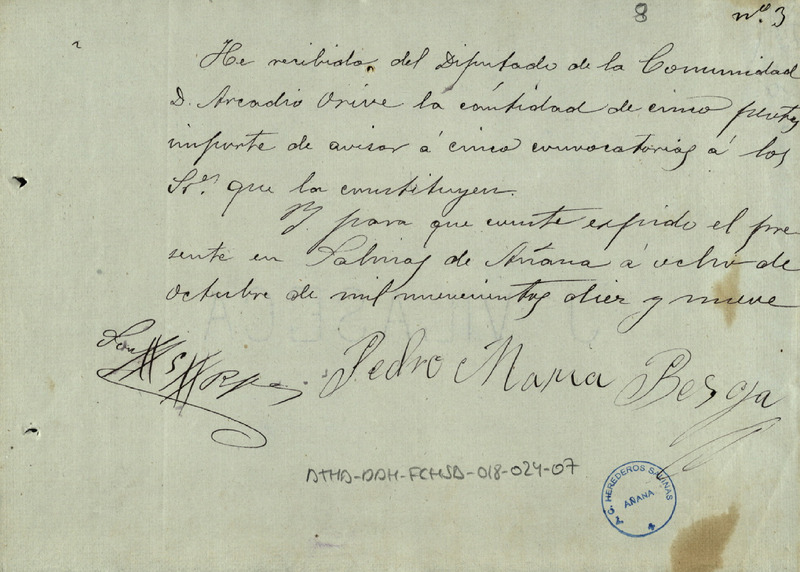 8
nº. 3
He recibido del Diputado de la Comunidad
D. Arcadio Orive la cántidad de cinco pesetas
importe de avisar á cinco convocatorias á los
Sres que la constituyen.
Y para que conste expido el pre
sente en Salinas de Añana á ocho de
Octubre de mil nuevecientos diez y nueve
Son
5
Pedro Maria Besga
ATHA-DAH-FCHSA-018-024-07
HEREDEROS SALINAS
AÑANA